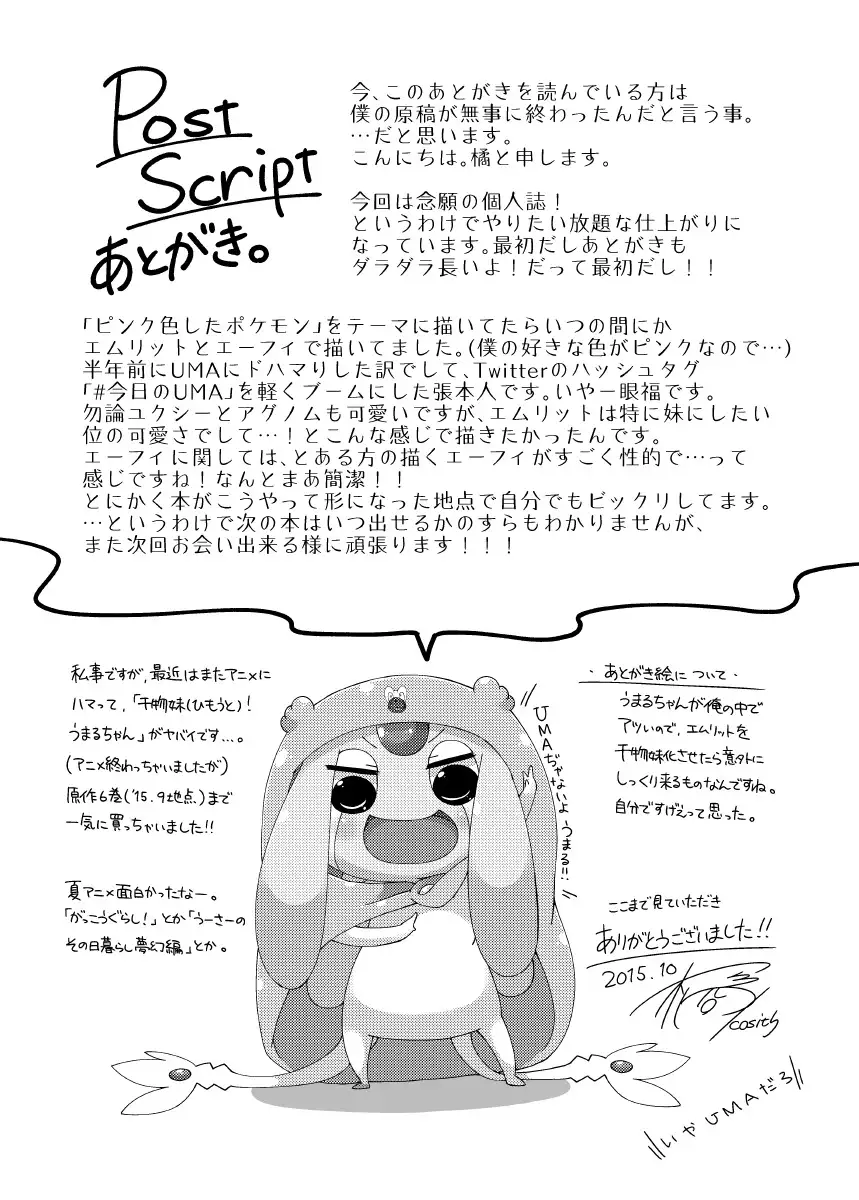 Post
Script
あとがき。
今、このあとがきを読んでいる方は
僕の原稿が無事に終わったんだと言う事。
…だと思います。
こんにちは。橘と申します。
今回は念願の個人誌！
というわけでやりたい放題な仕上がりに
なっています。最初だしあとがきも
ダラダラ長いよ！だって最初だし！！
「ピンク色したポケモン」をテーマに描いてたらいつの間にか
エムリットとエーフィで描いてました。(僕の好きな色がピンクなので…)
半年前にUMAにドハマりした訳でして、Twitterのハッシュタグ
「#今日のUMA」を軽くブームにした張本人です。いやー眼福です。
勿論ユクシーとアグノムも可愛いですが、エムリットは特に妹にしたい
位の可愛さでして…！とこんな感じで描きたかったんです。
エーフィに関しては、とある方の描くエーフィがすごく性的で…って
感じですね！なんとまあ簡潔！！
とにかく本がこうやって形になった地点で自分でもビックリしてます。
…というわけで次の本はいつ出せるかのすらもわかりませんが、
また次回お会い出来る様に頑張ります！！！
私事ですが、最近はまたアニメに
ハマって、「干物妹(ひもうと)！
うまるちゃん」がヤバイです…。
(アニメ終わっちゃいましたが)
原作6巻('15.9地点)まで
一気に買っちゃいました!!
夏アニメ面白かったなー。
「がっこうぐらし！」とか「うーさーの
その日暮らし夢幻編」とか。
UMAぢゃないよ うまる!!
・あとがき絵について・
うまるちゃんが俺の中で
アツいので、エムリットを
干物妹化させたら意外に
しっくり来るものなんですね。
自分ですげえって思った。
ここまで見ていただき
ありがとうございました!!
2015.10
橘
cosith
いやUMAだろ